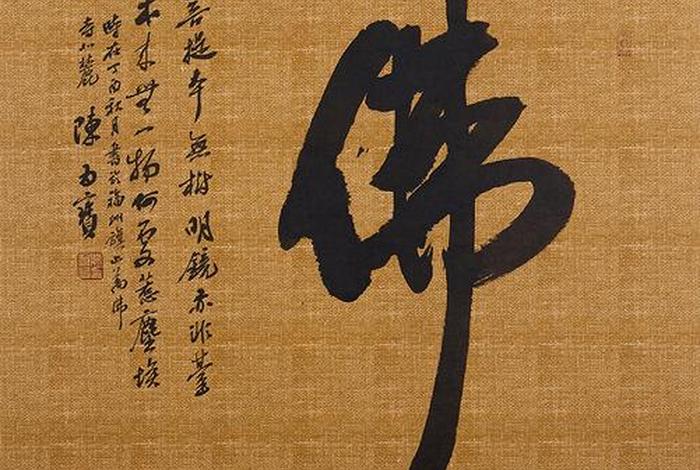 佛
菩提本無樹明鏡亦非臺
本来無一物何處惹塵埃
時在丁酉秋月書於福州旗山萬佛
寺山麓 陳寶